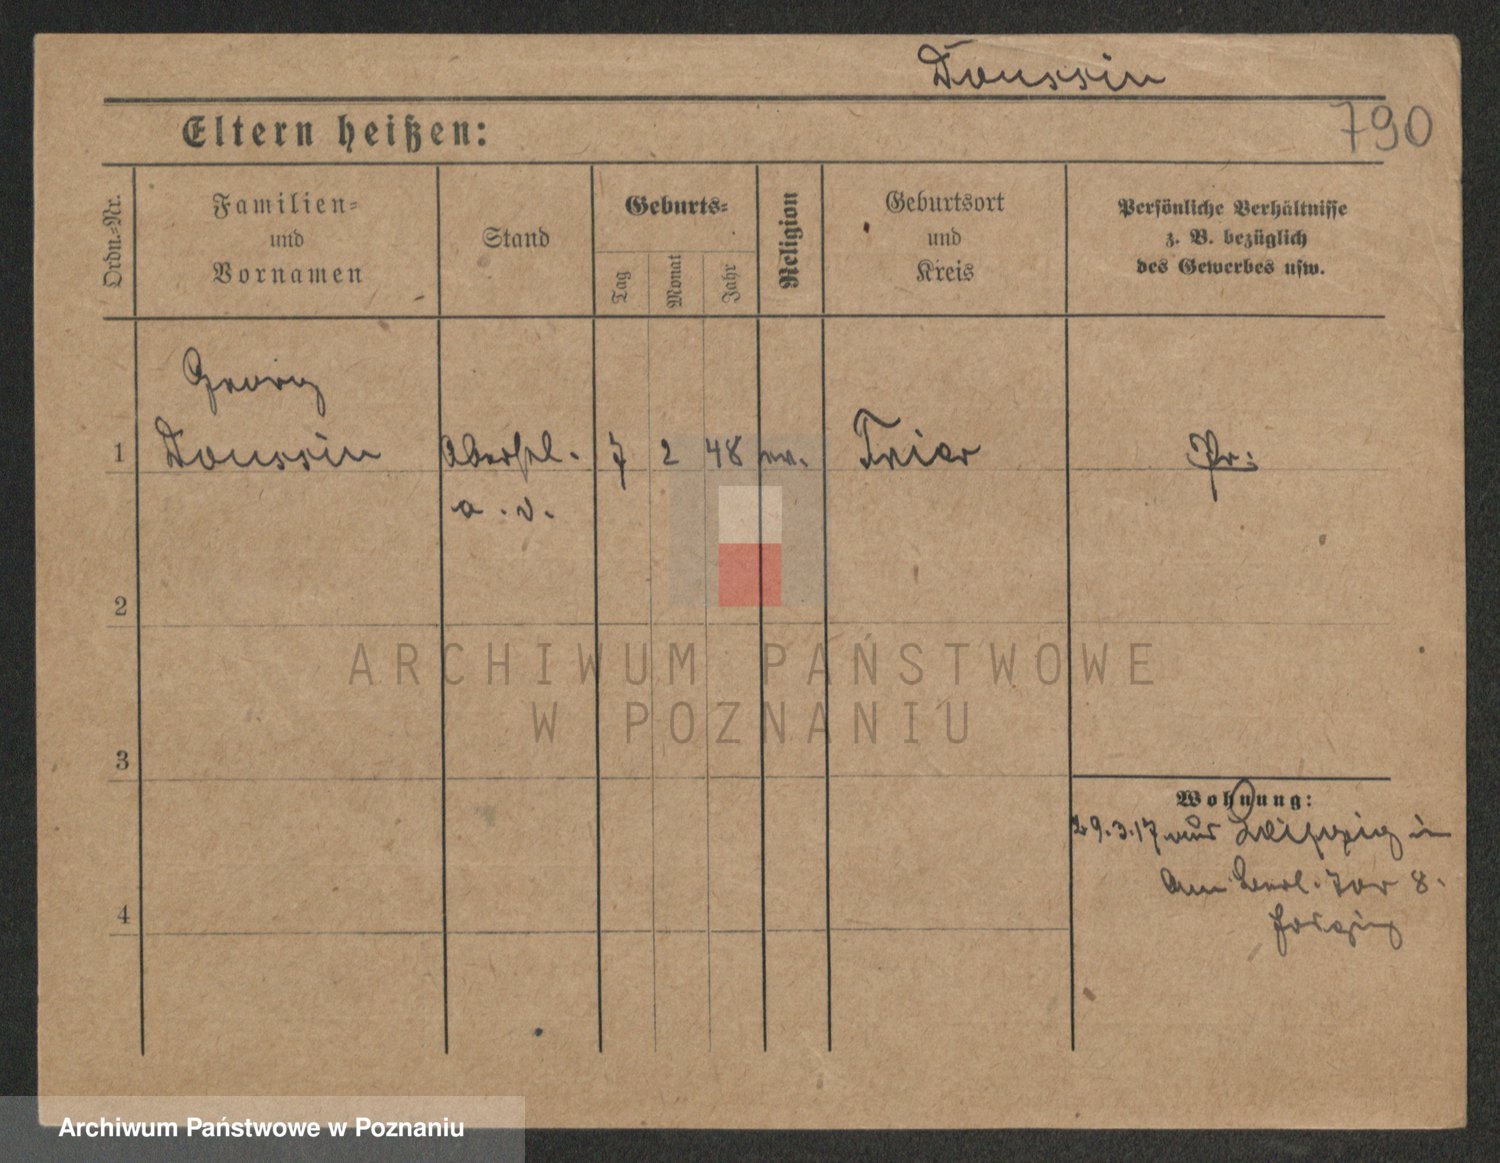 Toussin
790
Eltern heißen:
Ordn.-Nr.
Familien-
und
Vornamen
Stand
Geburts-
Tag
Monat
Jahr
Religion
Geburtsort
und
Kreis
Persönliche Verhältnisse
z. B. bezüglich
des Gewerbes usw.
Georg
1 Toussin 7 2 48 ev. Trier Pr:
a. D.
2
3
4
Wohnung:
29.3.17 aus Leipzig in
Am Berl. Tor 8.
ARCHIWUM PAŃSTWOWE
W POZNANIU
Archiwum Państwowe w Poznaniu